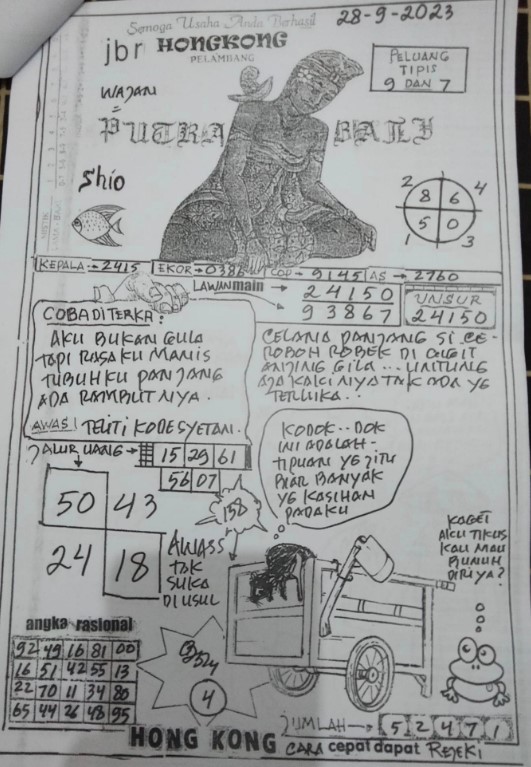 Semoga Usaha Anda Berhasil
28-9-2023
jbr HONGKONG
PELAMBANG
PELUANG
TIPIS
9 DAN 7
WAJAN
PUTRA BALI
Shio
2 8 6 4
1 5 0 3
KEPALA→2415 EKOR→0386 COP→9145 AS→2760
LAWAN main → 24150
93867
UNSUR
24150
COBA DITERKA:
AKU BUKAN GULA
TAPI RASAKU MANIS
TUBUHKU PANJANG
ADA RAMBUTNYA.
AWAS! TELITI KODE SYETAN.
CELANA PANJANG SI CE-
ROBOH ROBEK DI GIGIT
ANJING GILA... UNTUNG
AJA KAKINIYA TAK ADA YG
TERLUKA...
JALUR UANG→ 15 29 61
56 07
KODOK.. DOK
INI ADALAH-
TIPUAN YG JITU
BIAR BANYAK
YG KASIHAN
PADAKU
50 43
24 18
158
AWASS
TAK
SUKA
DI USUL
KAGET
AKU TIKUS
KAU MAU
BUNUH
DIRIYA?
angka rasional
92 49 16 81 00
16 51 42 55 13
22 70 11 34 80
65 44 26 48 95
4
JUMLAH→ 5 2 4 7 1
HONG KONG CARA cepat dapat REJEKI